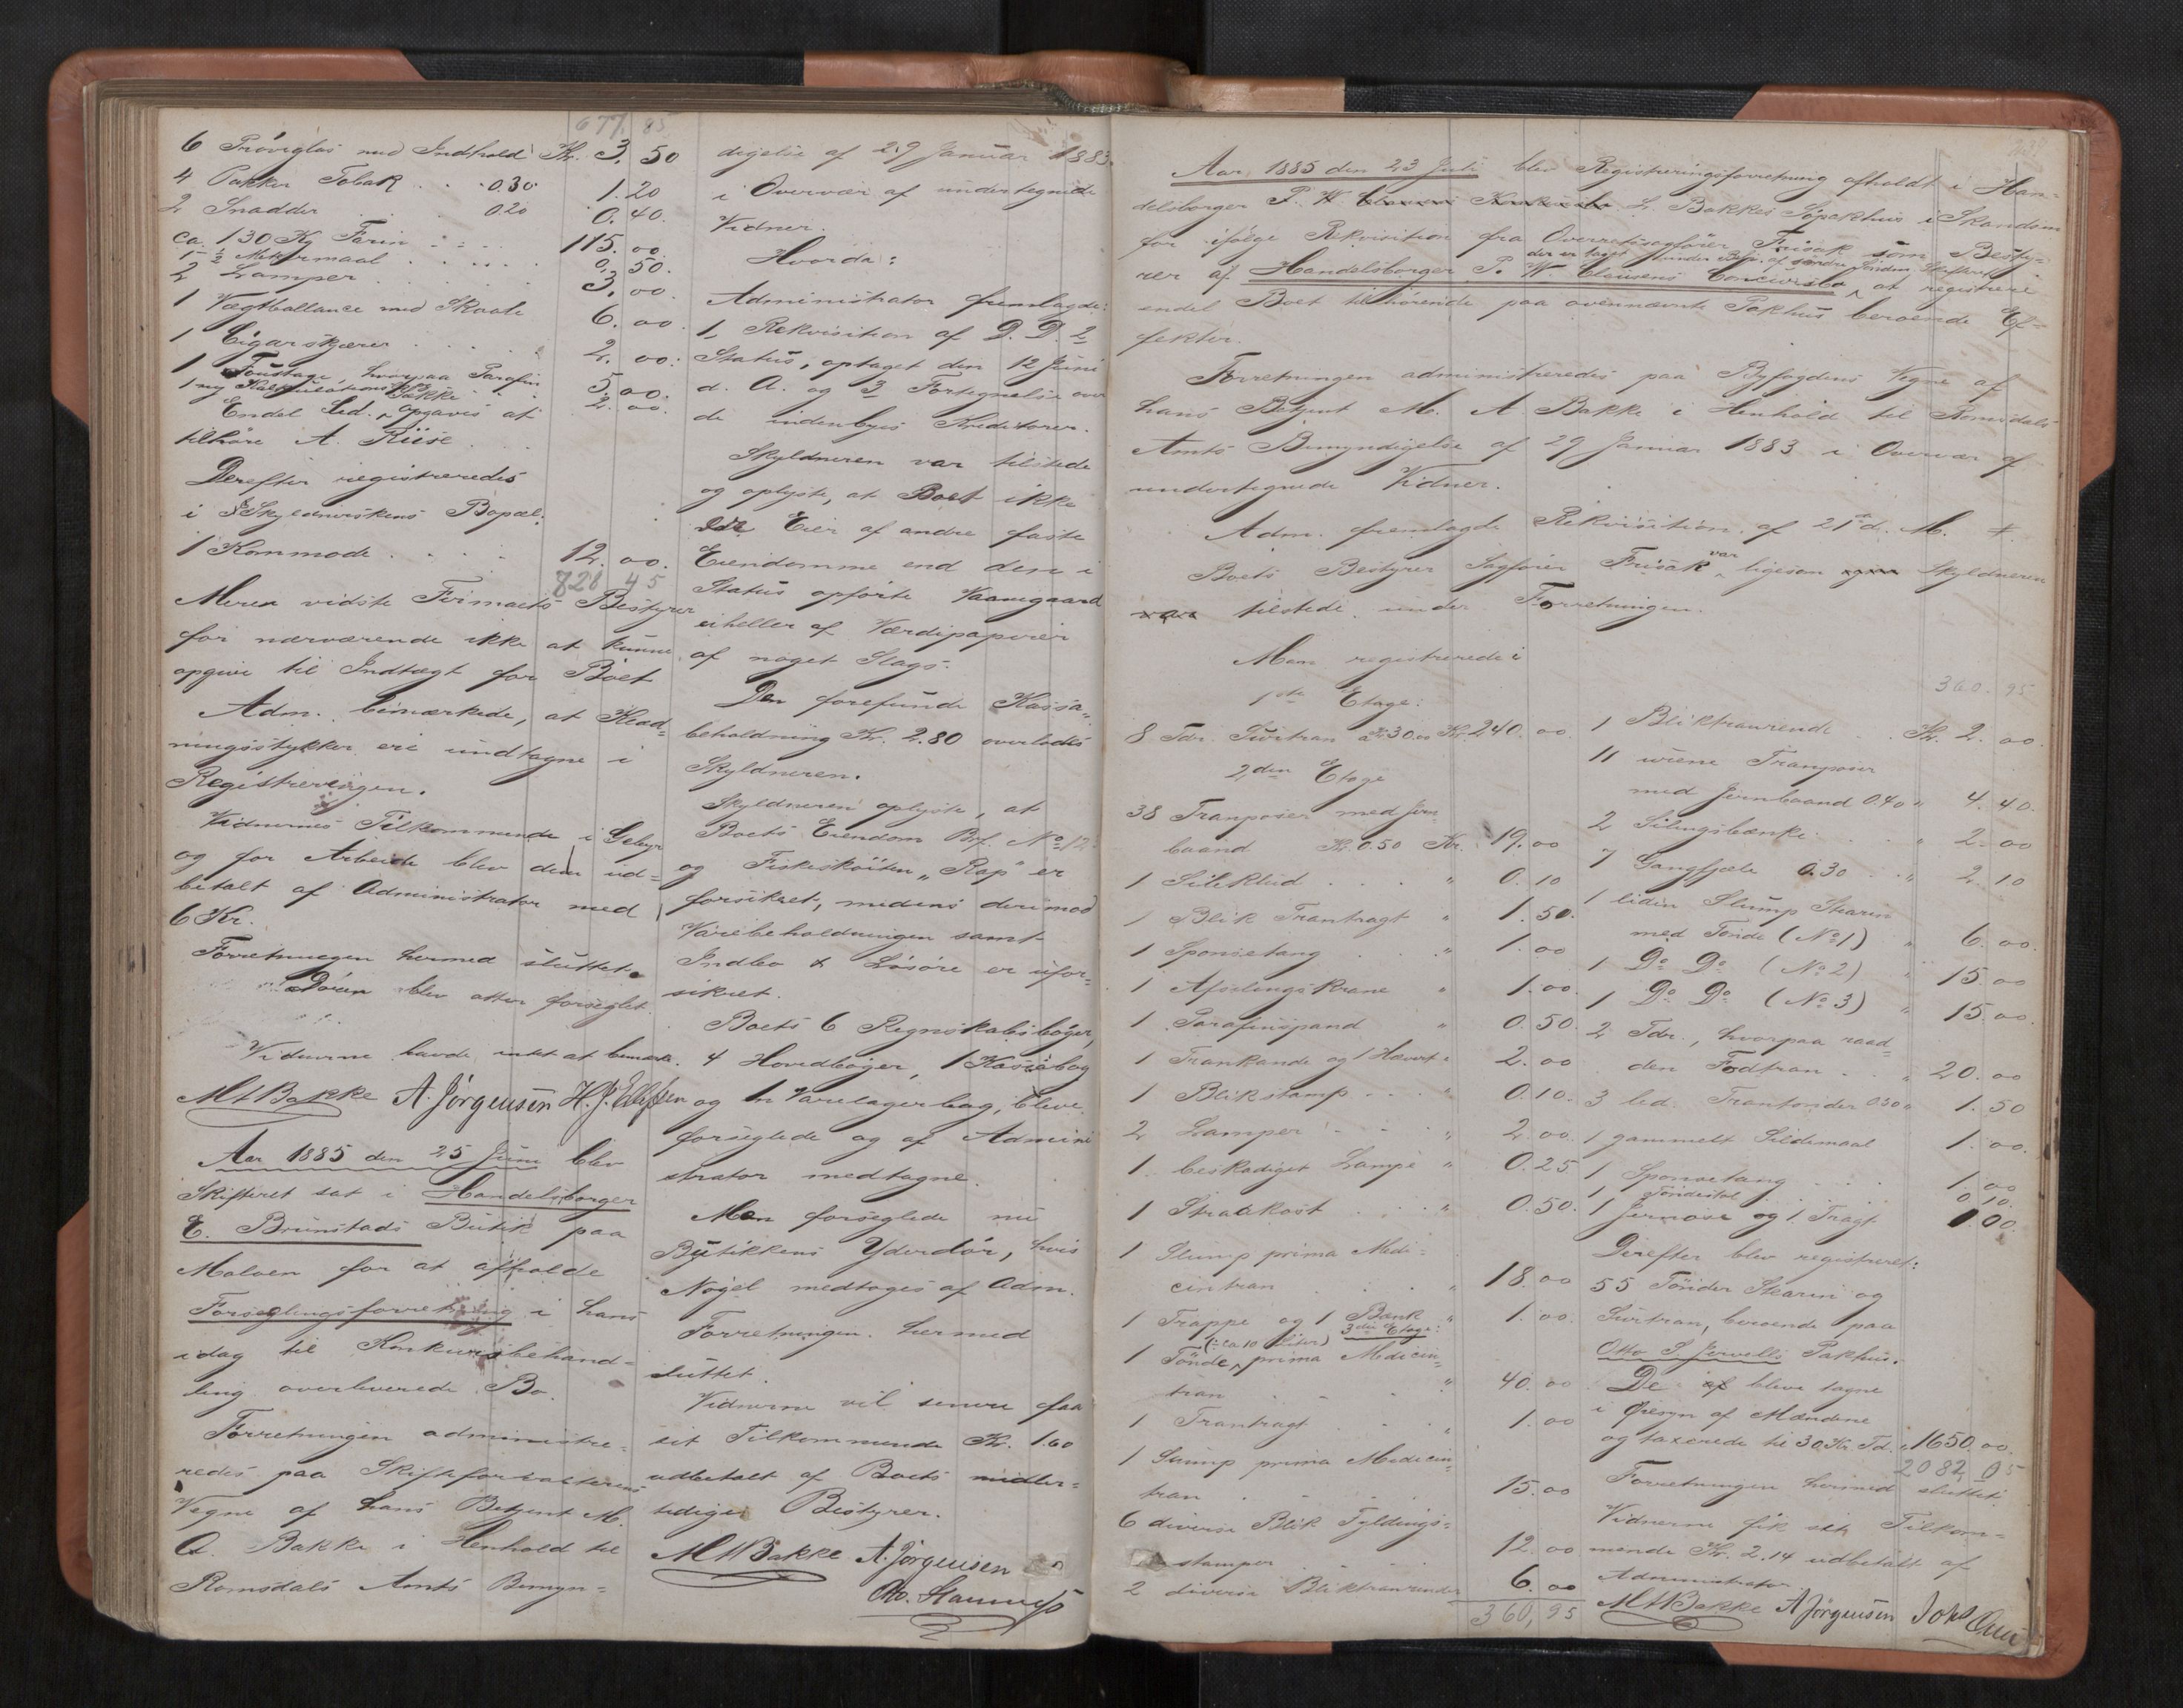 677. 85
6 Prøveglas med Indhold Kr. 3. 50
4 Pakker Tobak . . . 0.30 1. 20
2 Snadder . . . 0.20 0. 40.
ca. 130 Kg Farin . . . 115. 00
1 - ½ Mælermaal . . . 0. 50.
2 Lamper . . . 3. 00.
1 Vægtballance med Skaale 6. 00.
1 Cigarskjærer . . . 2. 00.
1 Foustage, hvorpaa Parafin 5. 00.
1 ny Kalkulations 2. 00.
Endel Led. Sække opgaves at
tilhøre A. Riise.
Derefter registreredes
i Skyldnerskens Bopæl:
1 Kommode . . . 12. 00.
828 45
Mere vidste Firmaets Bestyrer
for nærværende ikke at kunne
opgive til Indtægt for Boet
Adm. bemærkede, at Klæd=
ningsstykker ere undtagne i
Registreringen.
Vidnernes Tilkommende i Gebyr
og for Arbeide blev dem ud=
betalt af Administrator med
6 Kr.
Forretningen hermed sluttet.
Døren blev atter forseglet.
Vidnerne havde intet at bemærke.
M A Bakke A. Jørgensen H. J. Ellefsen
Aar 1885 den 25 Juni blev
Skifteret sat i Handelsborger
E. Brunstads Butik paa
Moloen for at afholde
Forseglingsforretning i hans
idag til Konkursbehand=
ling overleverede Bo.
Forretningen administre=
redes paa Skifteforvalterens
Vegne af hans Betjent M.
A. Bakke i Henhold til
Romsdals Amts Bemyn=
digelse af 29 Januar 1883
i Overvær af undertegnede
Vidner.
Hvorda:
Administrator fremlagde:
1, Rekvisition af D. D. 2
Status, optaget den 12 Juni
d. A. og 3 Fortegnelse over
de indenbyes Kreditorer.
Skyldneren var tilstede
og oplyste, at Boet ikke
Eier af andre faste
Eiendomme end den i
Status opførte Vaanegaard
eiheller af Værdipapirer
af noget Slags.
Den forefundne Kassa=
beholdning Kr. 2.80 overlodes
Skyldneren.
Skyldneren oplyste, at
Boets Eiendom Brf. No 12
og Fiskeskøiten „Rap" er
forsikret, medens derimod
Varebeholdningen samt
Indbo & Løsøre er ufor=
sikret.
Boets 6 Regnskabsbøger,
4 Hovedbøger, 1 Kassabog
og 1 Varelagerbog, bleve
forseglede og af Admini
strator medtagne.
Man forseglede nu
Butikkens Yderdør, hvis
Nøgel medtoges af Adm.
Forretningen hermed
sluttet.
Vidnerne vil senere faa
sit Tilkommende Kr. 1.60
udbetalt af Boets midler=
tidige Bestyrer.
M A Bakke A. Jørgensen
Aar 1885 den 23 Juli blev Registreringsforretning afholdt i Han=
delsborger P. W. L. Bakkes Søpakhus i Skandsen
for ifølge Rekvisition fra Overretssagfører Frisak som Besty=
der er taget under Beh. af søndre Søndm. Skifteret
rer af Handelsborger P. W. Clausens Concursbo, at registrere
endel Boet tilhørende paa ovennævnte Pakhus beroende Ef=
fekter.
Forretningen administreredes paa Byfogdens Vegne af
hans Betjent M. A. Bakke i Henhold til Romsdals
Amts Bemyndigelse af 29 Januar 1883 i Overvær af
undertegnede Vidner.
Adm. fremlagde Rekvisition af 21de d. M.
Boets Bestyrer Sagfører Frisak var ligesom Skyldneren
var tilstede under Forretningen.
Man registrerede i
1ste Etage:
8 Tdr. Surtran a Kr 30.00 Kr. 240. 00
2den Etage
38 Tranposer med Jern=
baand Kr. 0.50 Kr. 19. 00
1 Sileklud . . . " 0. 10
1 Blik Trantragt " 1. 50.
1 Sponsetang . . . " 1. 00
1 Afsilingskrane " 1. 00.
1 Parafinspand " 0. 50.
1 Trankande og 1 Hævert " 2. 00
1 Blikstamp . . . " 0. 10.
2 Lamper . . . " 2. 00.
1 beskadiget Lampe " 0. 25
1 Straakost . . . " 0. 50.
1 Slump prima Medi=
cintran . . . " 18. 00
1 Trappe og 1 Bænk " 1. 00
3die Etage:
(: ca 10 Liter)
1 Tønde, prima Medicin=
tran . . . " 40. 00
1 Trantragt . . . 1. 00
1 Slump prima Medicin=
tran . . . 15. 00
6 diverse Blik Fyldings=
stamper . . . 12. 00
2 diverse Bliktranrender 6. 00
360, 95
360. 95
1 Bliktranrende . . Kr. 2. 00.
11 urene Tranposer
med Jernbaand 0.40 " 4. 40.
2 Silingsbænke . . " 2. 00
7 Gangfjæle 0.30 . . " 2. 10
1 liden Slump Stearin
med Tønde (No 1) " 6. 00.
1 Do Do (No 2) " 15. 00
1 Do Do (No 3) " 15. 00.
2 Tdr., hvorpaa raad=
den Fodtran . . " 20. 00
3 led. Trantønder 0.50 " 1. 50
1 gammelt Sildemaal 1. 00.
1 Sponsetang . . . 1. 00
1 Tøndestol . . . 0 10.
1 Jernøse og 1 Tragt 1 00.
Derefter blev registreret:
55 Tønder Stearin og
Surtran, beroende paa
Otto S. Jervells Pakhus.
De bleve tagne
i Øiesyn af Mændene
og taxerede til 30 Kr. Td. " 1650. 00.
2082, 05
Forretningen hermed sluttet.
Vidnerne fik sit Tilkom=
mende Kr. 2.14 udbetalt af
Administrator.
M A Bakke A Jørgensen